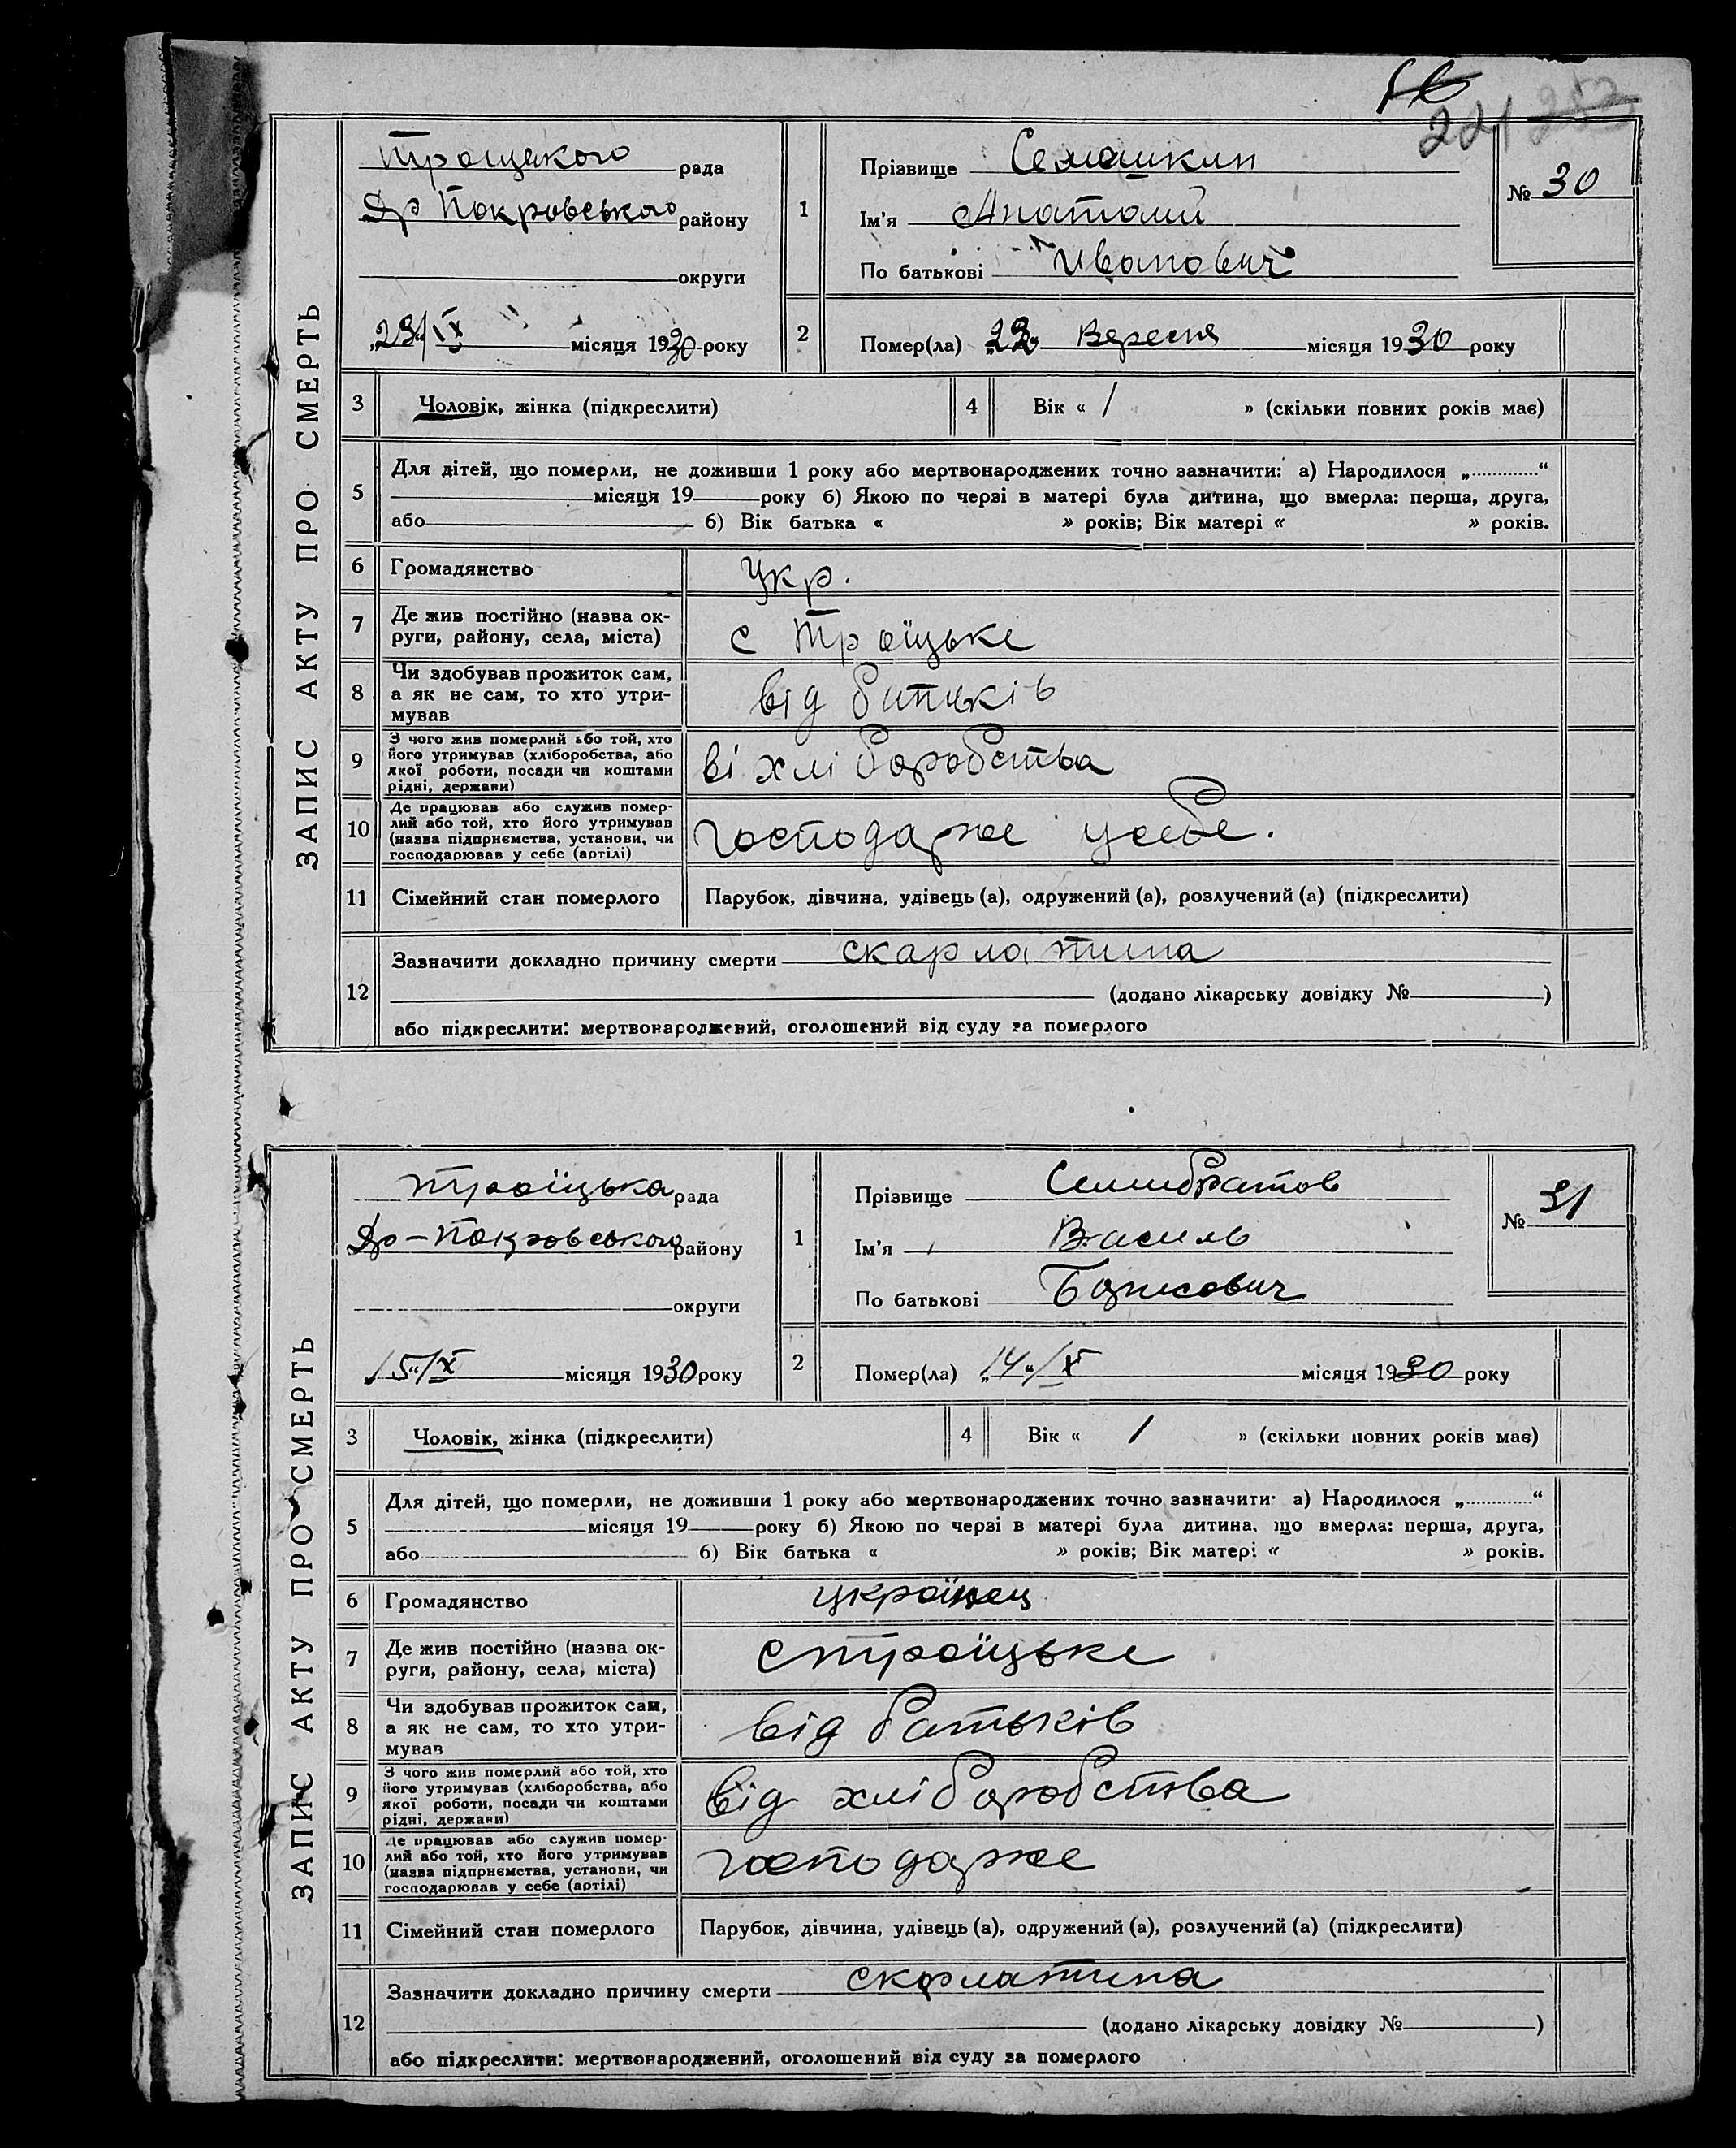 221
ЗАПИС АКТУ ПРО СМЕРТЬ
Троицкого рада
Др Покровського району
округи
„23“/IX місяця 1930 року
1
Прізвище Семашкин
Ім'я Анатолий
По батькові Иванович
№ 30
2
Помер(ла) „22“ Вересня місяця 1930 року
3
Чоловік, жінка (підкреслити)
4
Вік « 1 » (скільки повних років має)
5
Для дітей, що померли, не доживши 1 року або мертвонароджених точно зазначити: а) Народилося „.............“
місяця 19 року б) Якою по черзі в матері була дитина, що вмерла: перша, друга,
або 6) Вік батька « » років; Вік матері « » років.
6
Громадянство
Укр.
7
Де жив постійно (назва ок-
руги, району, села, міста)
с Троїцьке
8
Чи здобував прожиток сам,
а як не сам, то хто утри-
мував
від батьків
9
З чого жив померлий або той, хто
його утримував (хліборобства, або
якої роботи, посади чи коштами
рідні, держави)
ві хліборобства
10
Де працював або служив помер-
лий або той, хто його утримував
(назва підприємства, установи, чи
господарював у себе (артілі)
господарже усебе.
11
Сімейний стан померлого
Парубок, дівчина, удівець (а), одружений (а), розлучений (а) (підкреслити)
12
Зазначити докладно причину смерти скарлатина
(додано лікарську довідку № )
або підкреслити: мертвонароджений, оголошений від суду за померлого
ЗАПИС АКТУ ПРО СМЕРТЬ
Троїцька рада
Др-Покровського району
округи
„15“/X місяця 1930 року
1
Прізвище Семибратов
Ім'я Василь
По батькові Борисович
№ 31
2
Помер(ла) „14“/X місяця 1930 року
3
Чоловік, жінка (підкреслити)
4
Вік « 1 » (скільки повних років має)
5
Для дітей, що померли, не доживши 1 року або мертвонароджених точно зазначити: а) Народилося „.............“
місяця 19 року б) Якою по черзі в матері була дитина, що вмерла: перша, друга,
або 6) Вік батька « » років; Вік матері « » років.
6
Громадянство
українец
7
Де жив постійно (назва ок-
руги, району, села, міста)
с Троїцьке
8
Чи здобував прожиток сам,
а як не сам, то хто утри-
мував
від батьків
9
З чого жив померлий або той, хто
його утримував (хліборобства, або
якої роботи, посади чи коштами
рідні, держави)
від хліборобства
10
Де працював або служив помер-
лий або той, хто його утримував
(назва підприємства, установи, чи
господарював у себе (артілі)
господарже
11
Сімейний стан померлого
Парубок, дівчина, удівець (а), одружений (а), розлучений (а) (підкреслити)
12
Зазначити докладно причину смерти скорлатина
(додано лікарську довідку № )
або підкреслити: мертвонароджений, оголошений від суду за померлого